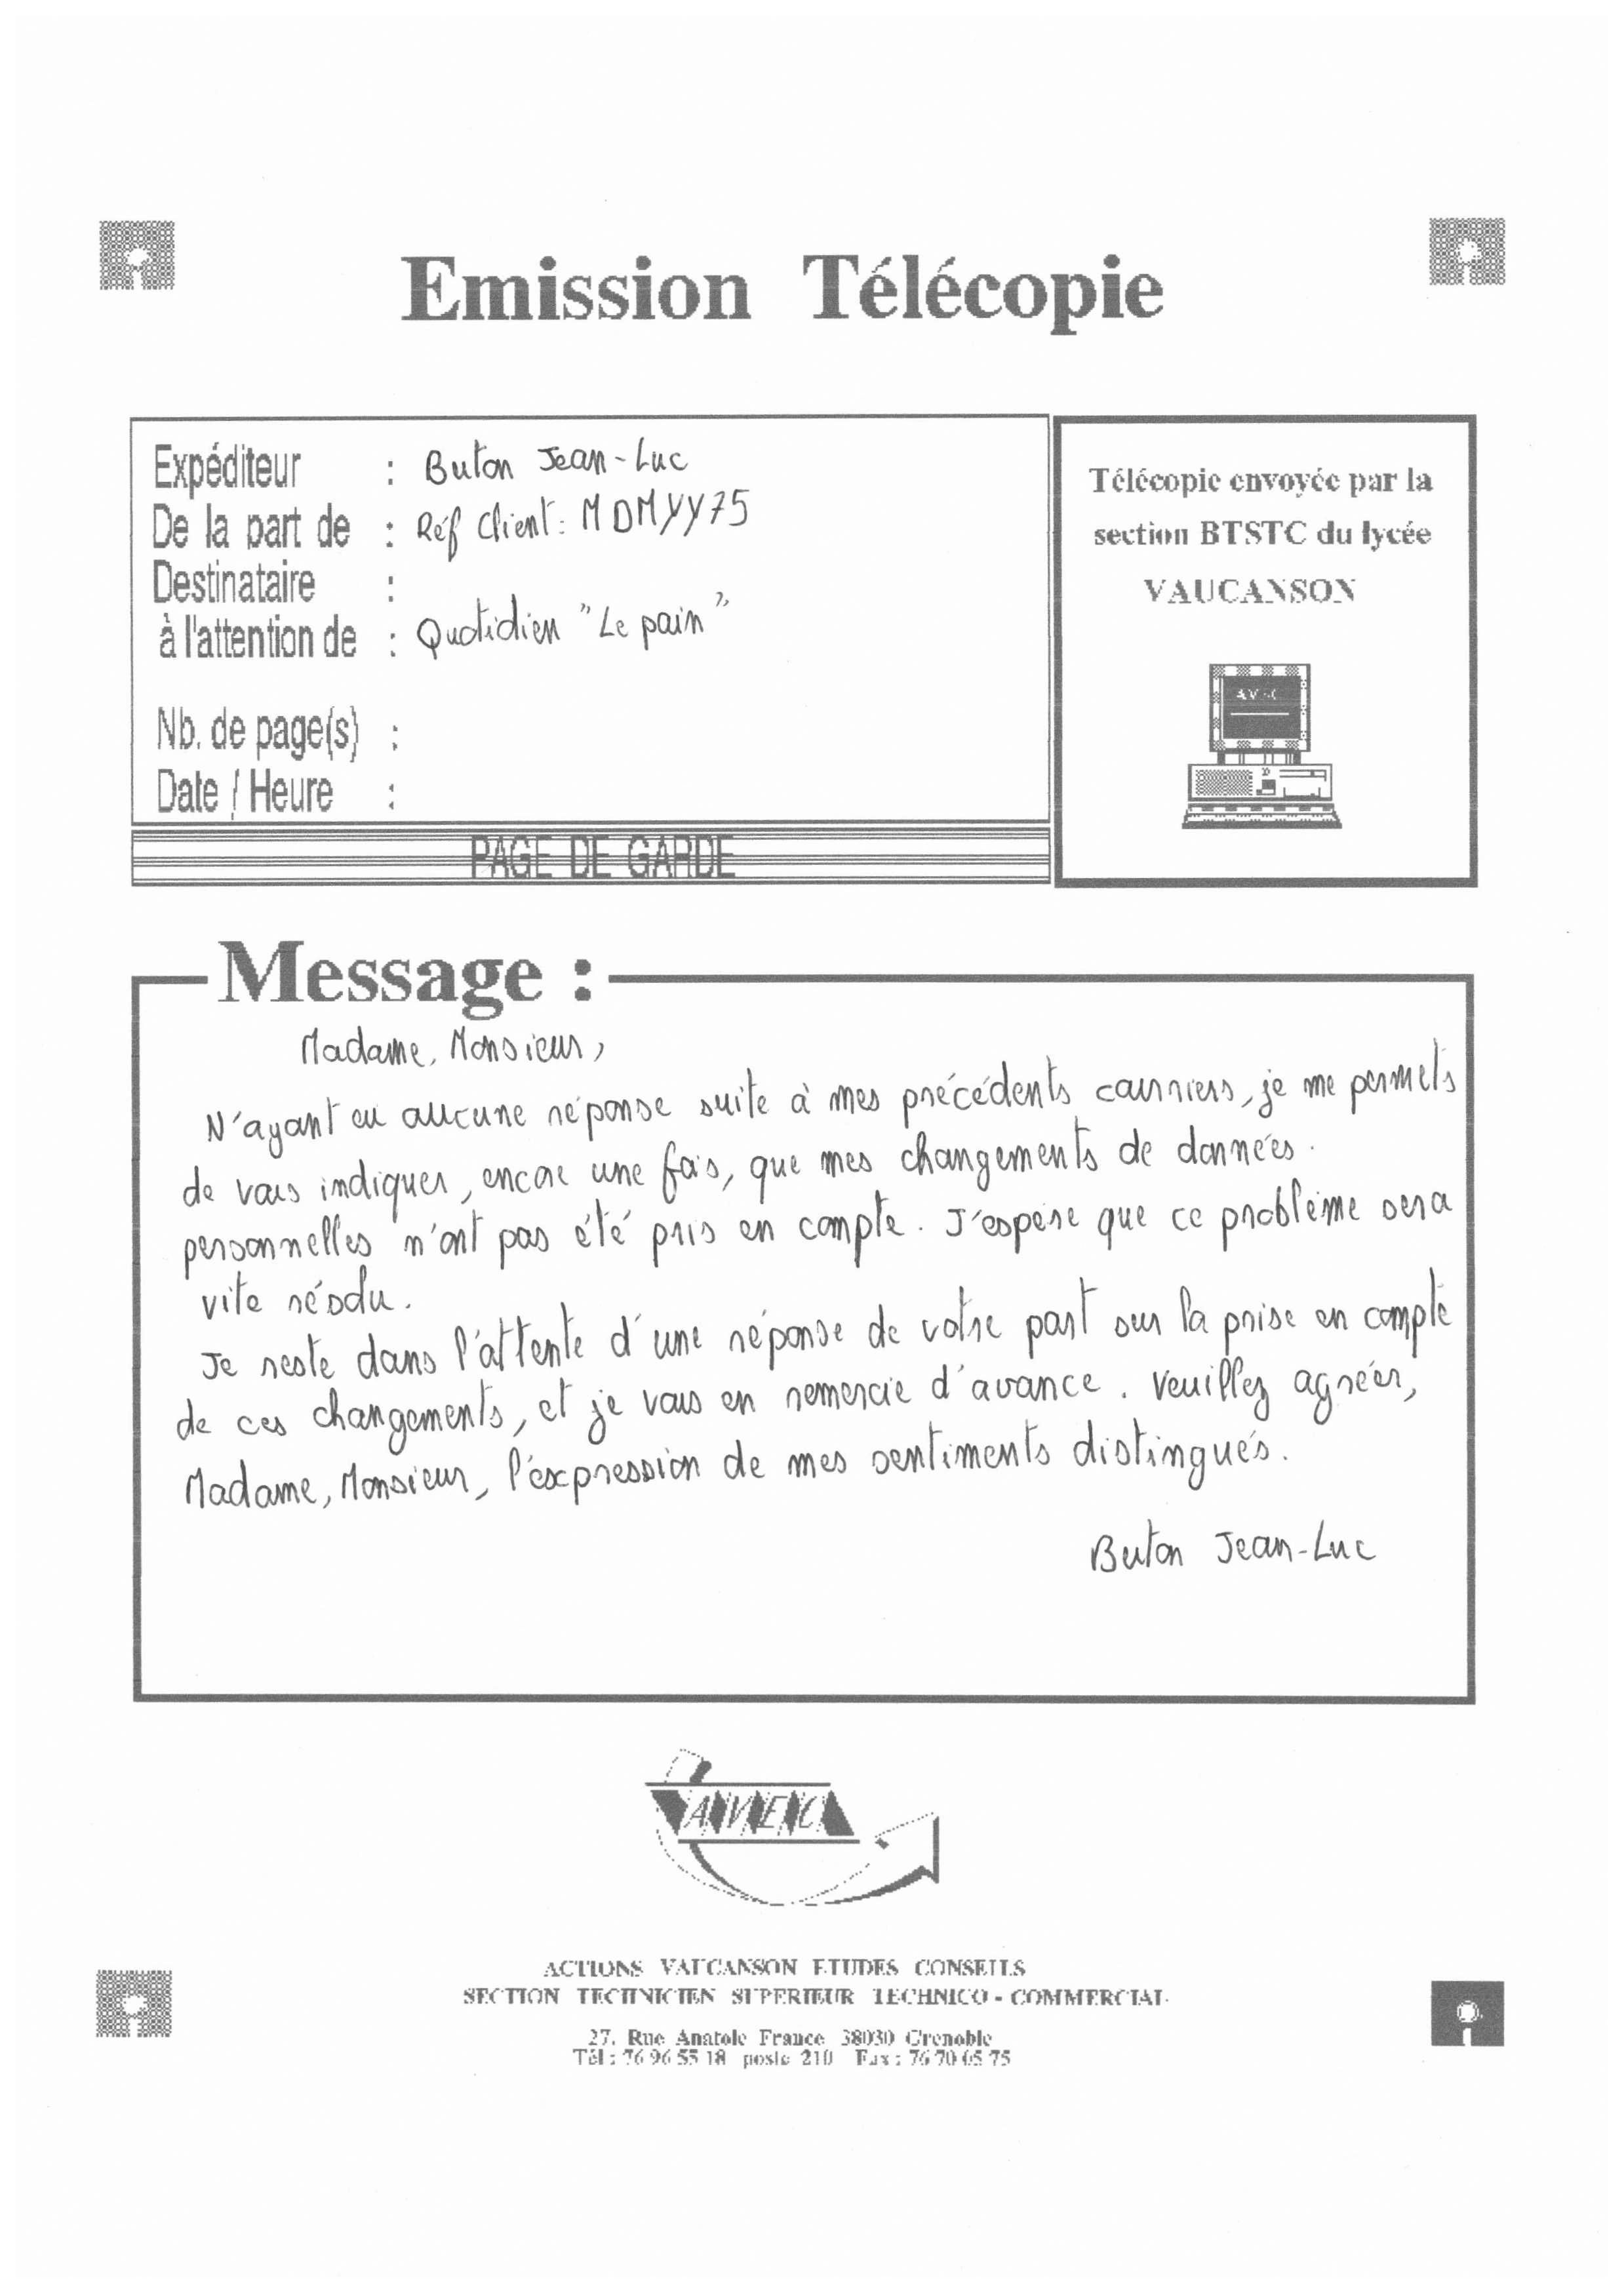 Emission Télécopie
Expéditeur : Buton Jean-Luc
De la part de : Réf Client : MDMYY75
Destinataire :
à l'attention de : Quotidien "Le pain"
Nb. de page(s) :
Date / Heure :
PAGE DE GARDE
Télécopie envoyée par la
section BTSTC du lycée
VAUCANSON
Message :
Madame, Monsieur,
N'ayant eu aucune réponse suite à mes précédents courriers, je me permets
de vous indiquer, encore une fois, que mes changements de données
personnelles n'ont pas été pris en compte. J'espère que ce problème sera
vite résolu.
Je reste dans l'attente d'une réponse de votre part sur la prise en compte
de ces changements, et je vous en remercie d'avance. Veuillez agréer,
Madame, Monsieur, l'expression de mes sentiments distingués.
Buton Jean-Luc
AVEC
ACTIONS VAUCANSON ETUDES CONSEILS
SECTION TECHNICIEN SUPERIEUR TECHNICO - COMMERCIAL
27, Rue Anatole France 38030 Grenoble
Tél : 76 96 55 18 poste 210 Fax : 76 70 65 75